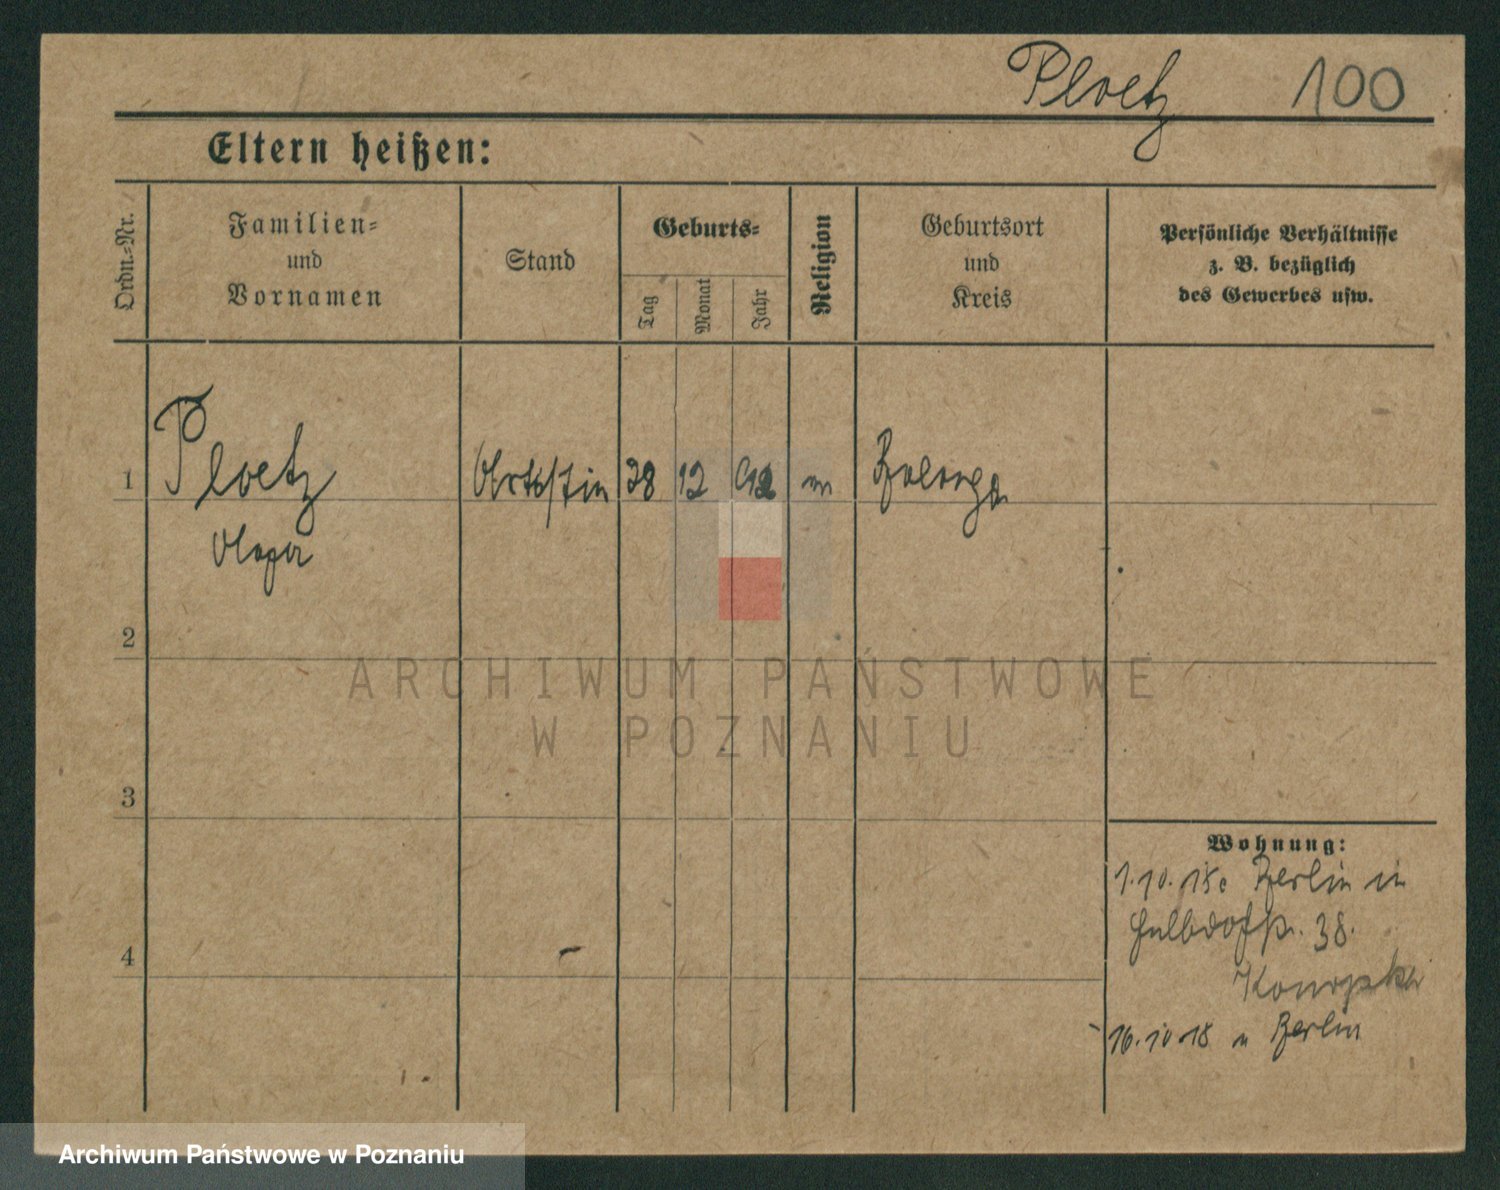 Ploetz 100
Eltern heißen:
Ordn.=Nr.
Familien=
und
Vornamen
Stand
Geburts=
Tag
Monat
Jahr
Religion
Geburtsort
und
Kreis
Persönliche Verhältnisse
z. B. bezüglich
des Gewerbes usw.
1 Ploetz 28 12 92
2
3
4
Wohnung:
1.10.18 Berlin in
38.
Konopka
16.10.18 n Berlin
ARCHIWUM PAŃSTWOWE
W POZNANIU
Archiwum Państwowe w Poznaniu